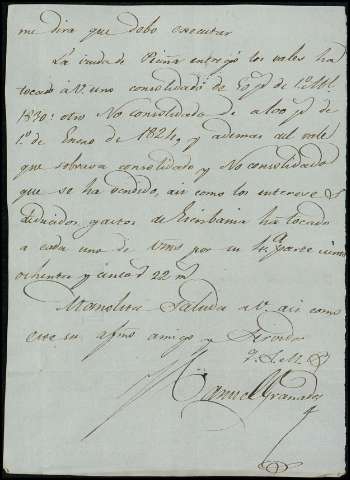 me dira que debo executar
La viuda de Piaña entregó los vales ha
tocado á V. uno consolidado de 
1830: otro No Consolidado de a 100 p.s de
1.º de Enero de 1824, y ademas del vale
que sobrava consolidado, y No consolidado
que se ha vendido, asi como los interese
deducidos gastos de Escribania ha tocado
a cada uno de Vms por su 
ochenta y cinco 22 m
Manolita Saluda a V. asi como
este su afmo amigo, y Servidor
q. S. M. B.
Manuel Granados